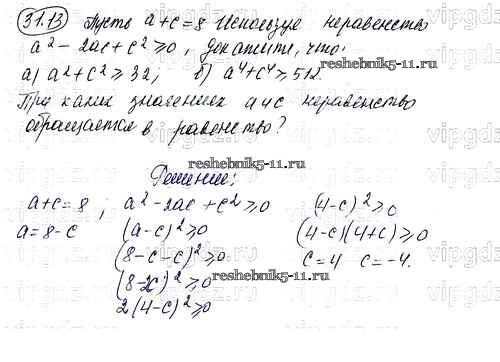 31.13 Пусть a+c=8 Используя неравенство
a² - 2ac + c² ≥ 0, докажите, что:
а) a² + c² ≥ 32; б) a⁴ + c⁴ ≥ 512.
При каких значениях a и c неравенство
обращается в равенство?
reshebnik5-11.ru
Решение:
a+c=8 ; a² - 2ac + c² ≥ 0 (4-c)² ≥ 0
a=8-c (a-c)² ≥ 0 (4-c)(4+c) ≥ 0
(8-c-c)² ≥ 0 c=4 c=-4.
(8-2c)² ≥ 0
reshebnik5-11.ru
2(4-c)² ≥ 0
reshebnik5-11.ru